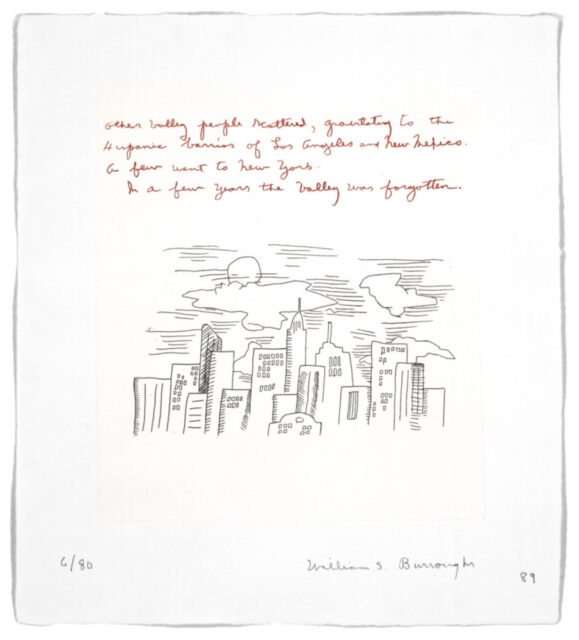 other Valley people scattered, gravitating to the
Hispanic barrios of Los Angeles and New Mexico.
A few went to New York.
In a few years the Valley was forgotten.
6/80
William S. Burroughs
89